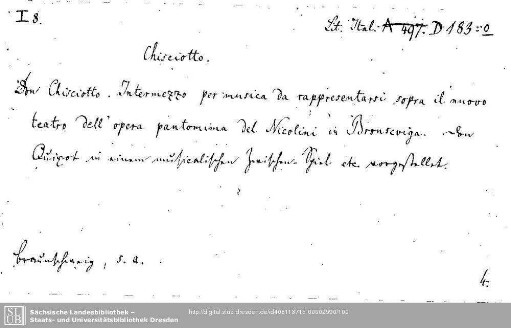 I 8.
Lit. Ital. A 497. D 183=0
Chisciotto.
Don Chisciotto. Intermezzo per musica da rappresentarsi sopra il nuovo
teatro dell' opera pantomima del Nicolini in Bronseviga. Don
Quixot in einem musicalischen Zwischen-Spiel etc. vorgestellet.
Braunschweig, s. a.
4.
Sächsische Landesbibliothek –
Staats- und Universitätsbibliothek Dresden